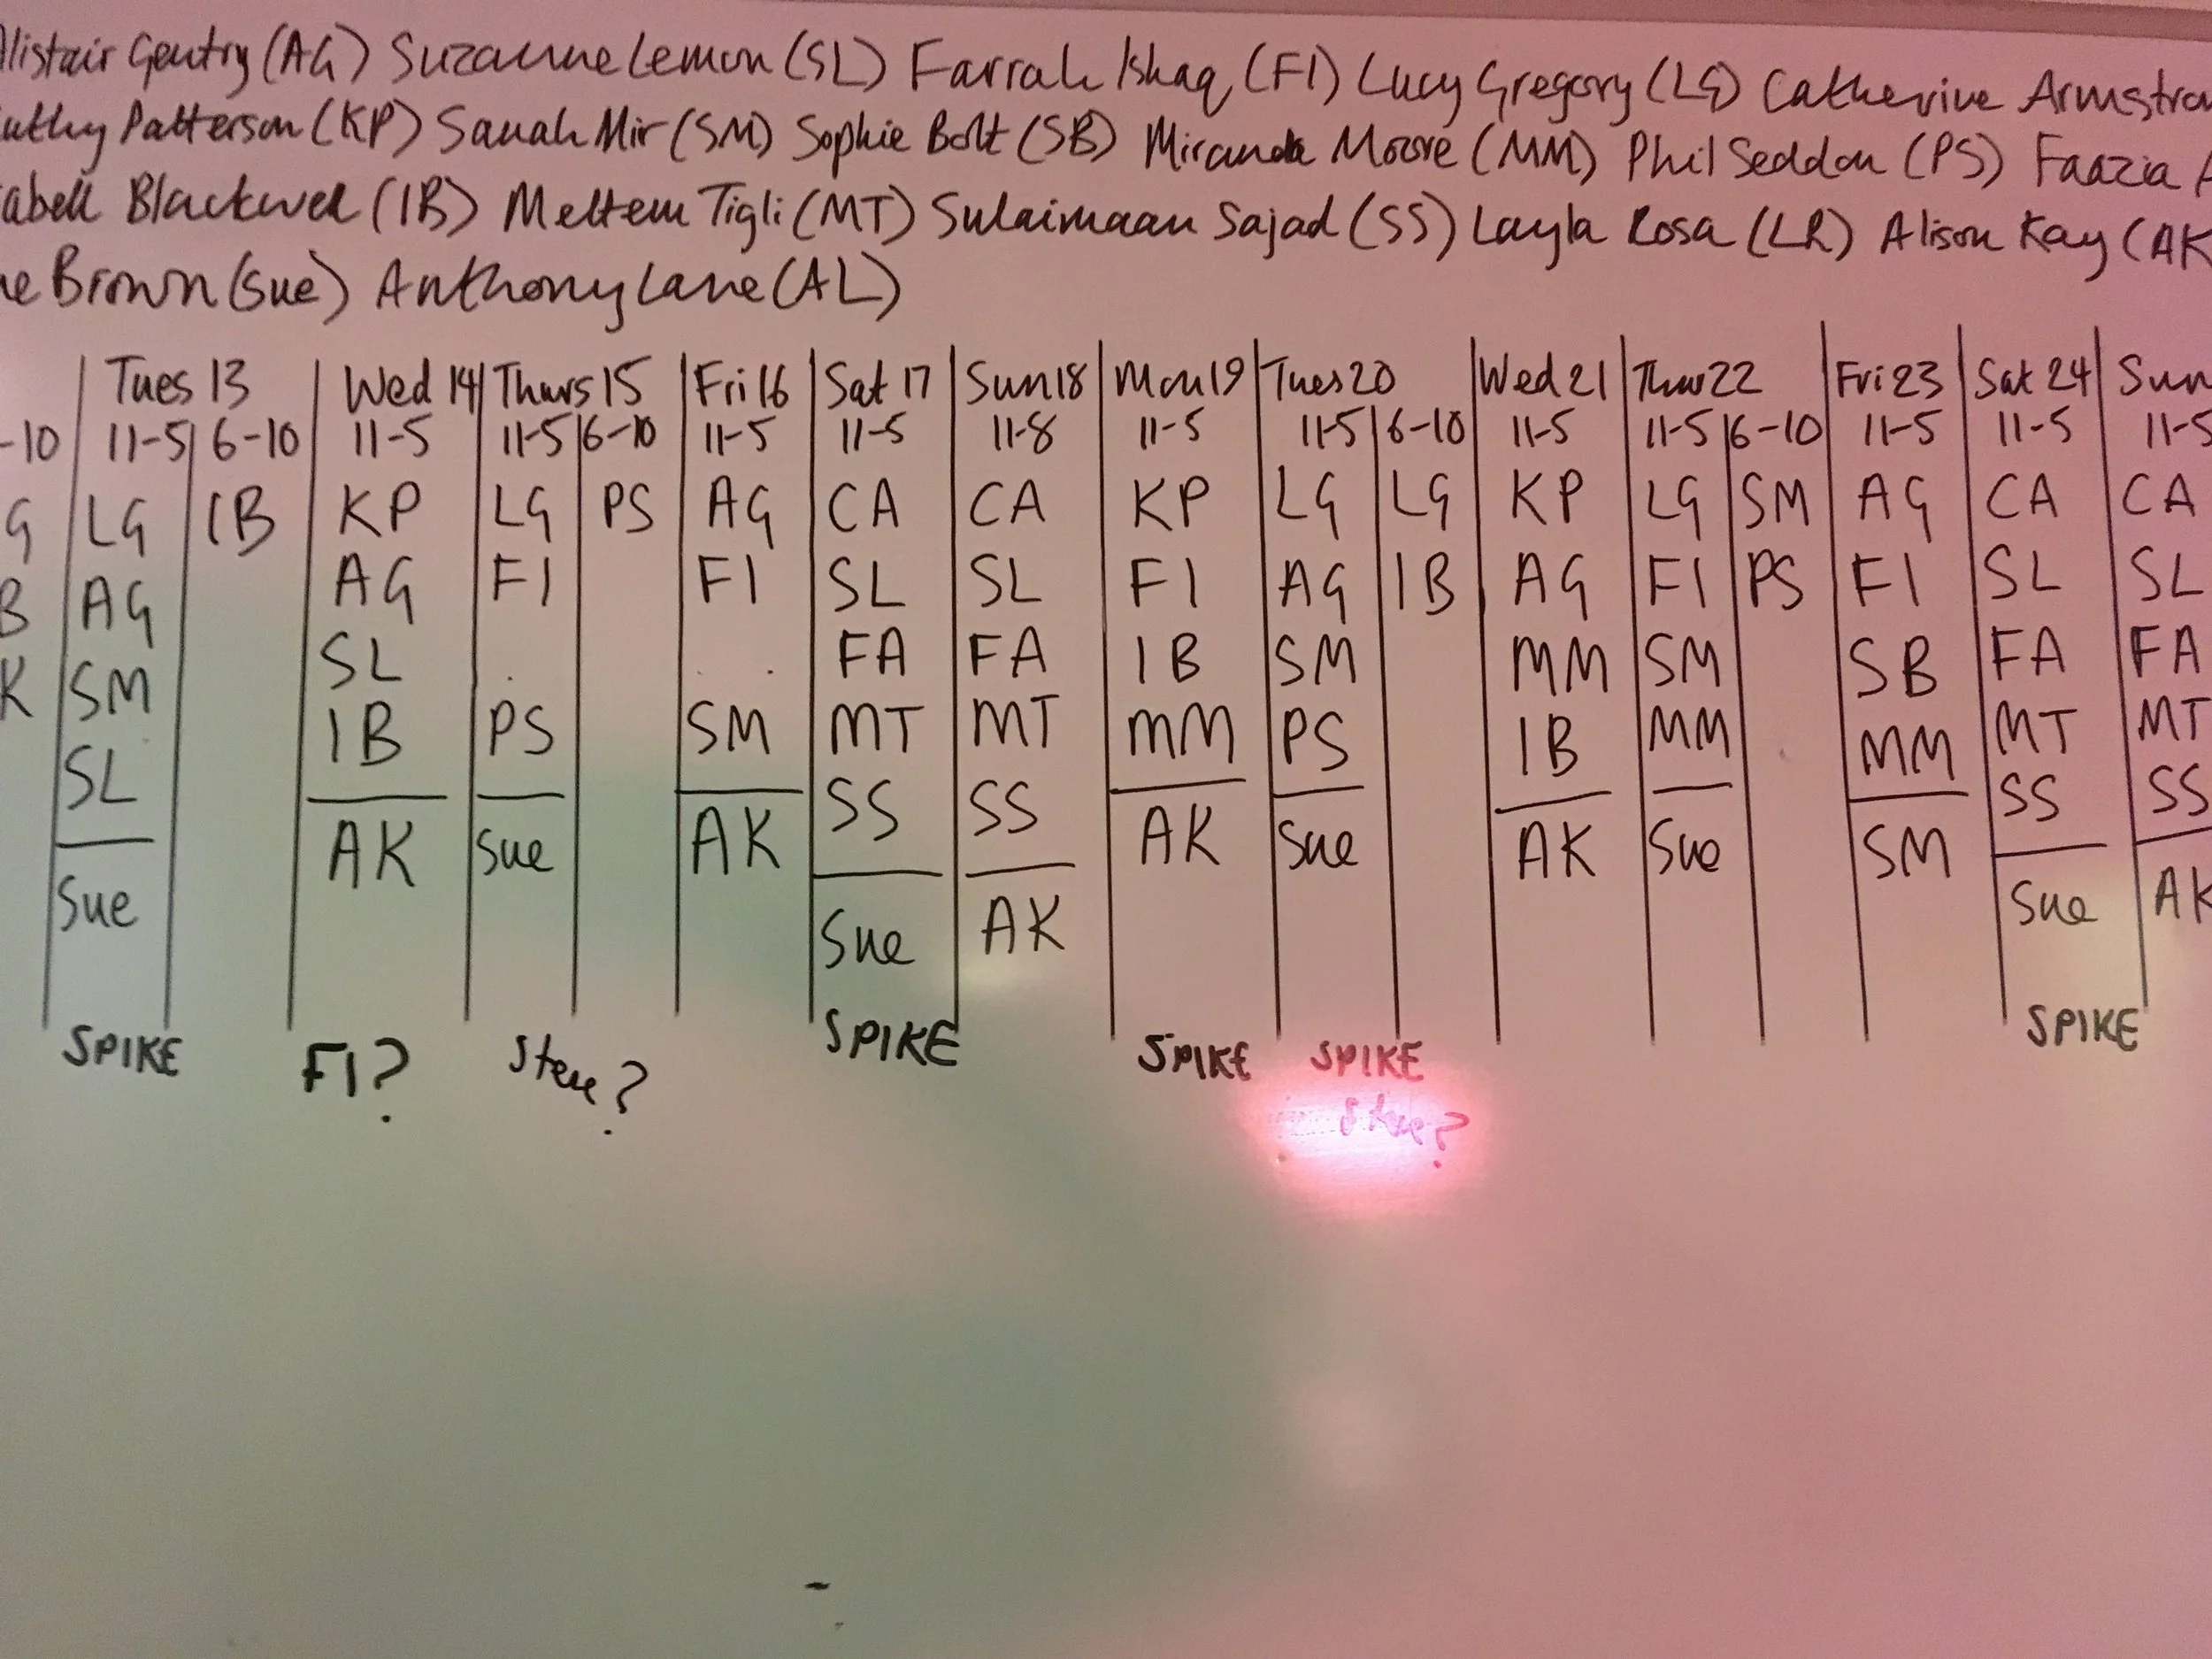 Alistair Gentry (AG) Suzanne Lemon (SL) Farrah Ishaq (FI) Lucy Gregory (LG) Catherine Armstro
athy Patterson (KP) Sanah Mir (SM) Sophie Bolt (SB) Miranda Moore (MM) Phil Seddon (PS) Faazia A
abell Blackwell (IB) Meltem Tigli (MT) Sulaimaan Sajad (SS) Layla Rosa (LR) Alison Kay (AK
ne Brown (Sue) Anthony Lane (AL)
Tues 13 Wed 14 Thurs 15 Fri 16 Sat 17 Sun 18 Mon 19 Tues 20 Wed 21 Thur 22 Fri 23 Sat 24 Sun
-10 11-5 6-10 11-5 11-5 6-10 11-5 11-5 11-8 11-5 11-5 6-10 11-5 11-5 6-10 11-5 11-5 11-5
G LG IB KP LG PS AG CA CA KP LG LG KP LG SM AG CA CA
B AG AG FI FI SL SL FI AG IB AG FI PS FI SL SL
K SM SL FA FA IB SM MM SM SB FA FA
SL IB PS SM MT MT MM PS IB MM MM MT MT
SS SS SS SS
Sue AK Sue AK Sue AK AK Sue AK Sue SM Sue AK
SPIKE FI? Steve? SPIKE SPIKE SPIKE SPIKE
Steve?